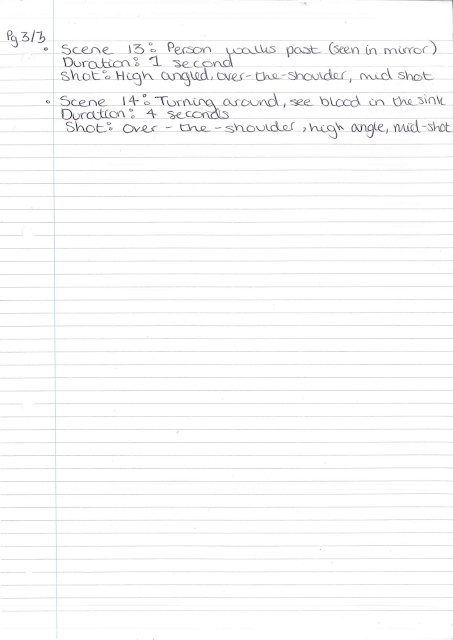 Pg 3/3
• Scene 13: Person walks past (seen in mirror)
Duration: 1 second
Shot: High angled, over-the-shoulder, mid shot
• Scene 14: Turning around, see blood in the sink
Duration: 4 seconds
Shot: over - the - shoulder, high angle, mid-shot